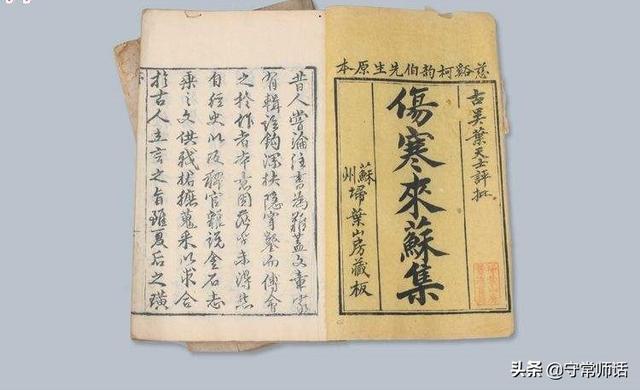 慈谿柯韵伯先生原本
古吳葉天士評批
傷寒來蘇集
蘇州掃葉山房藏板
昔人嘗論注書為難蓋文章家
有輯註鉤深抉隱穿鑿而傅會
之於作者本意固茫乎未得然
自經史以及稗官雜說金石志
乘之文供我捃摭蒐采以求合
於古人立言之旨雖夏后之璜
头条 @守常师话